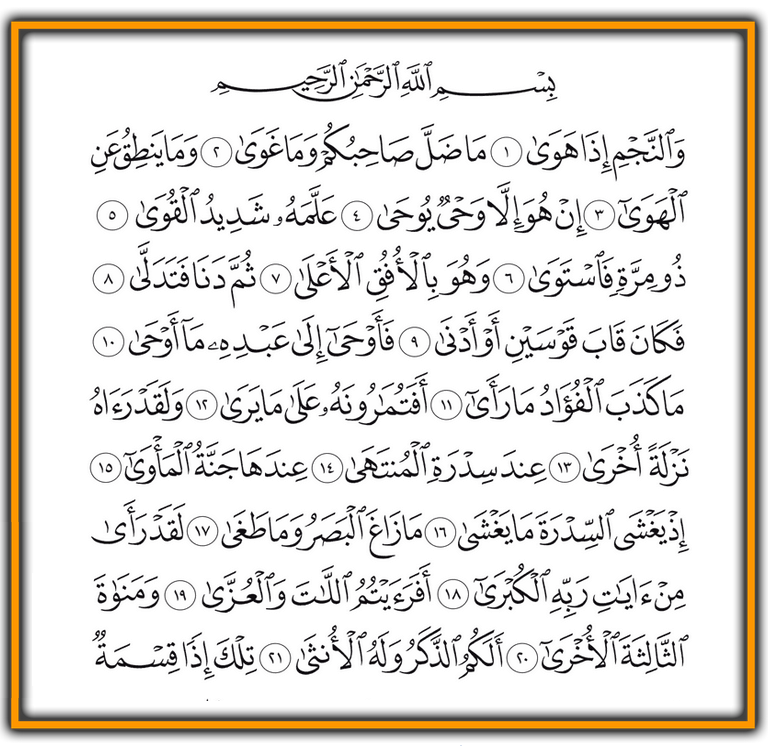 بِسْمِ ٱللَّهِ ٱلرَّحْمَٰنِ ٱلرَّحِيمِ
وَٱلنَّجْمِ إِذَا هَوَىٰ ١ مَا ضَلَّ صَاحِبُكُمْ وَمَا غَوَىٰ ٢ وَمَا يَنطِقُ عَنِ
ٱلْهَوَىٰٓ ٣ إِنْ هُوَ إِلَّا وَحْىٌ يُوحَىٰ ٤ عَلَّمَهُۥ شَدِيدُ ٱلْقُوَىٰ ٥
ذُو مِرَّةٍ فَٱسْتَوَىٰ ٦ وَهُوَ بِٱلْأُفُقِ ٱلْأَعْلَىٰ ٧ ثُمَّ دَنَا فَتَدَلَّىٰ ٨
فَكَانَ قَابَ قَوْسَيْنِ أَوْ أَدْنَىٰ ٩ فَأَوْحَىٰٓ إِلَىٰ عَبْدِهِۦ مَآ أَوْحَىٰ ١٠
مَا كَذَبَ ٱلْفُؤَادُ مَا رَأَىٰٓ ١١ أَفَتُمَٰرُونَهُۥ عَلَىٰ مَا يَرَىٰ ١٢ وَلَقَدْ رَءَاهُ
نَزْلَةً أُخْرَىٰ ١٣ عِندَ سِدْرَةِ ٱلْمُنتَهَىٰ ١٤ عِندَهَا جَنَّةُ ٱلْمَأْوَىٰٓ ١٥
إِذْ يَغْشَى ٱلسِّدْرَةَ مَا يَغْشَىٰ ١٦ مَا زَاغَ ٱلْبَصَرُ وَمَا طَغَىٰ ١٧ لَقَدْ رَأَىٰ
مِنْ ءَايَٰتِ رَبِّهِ ٱلْكُبْرَىٰٓ ١٨ أَفَرَءَيْتُمُ ٱللَّٰتَ وَٱلْعُزَّىٰ ١٩ وَمَنَوٰةَ
ٱلثَّالِثَةَ ٱلْأُخْرَىٰٓ ٢٠ أَلَكُمُ ٱلذَّكَرُ وَلَهُ ٱلْأُنثَىٰ ٢١ تِلْكَ إِذًا قِسْمَةٌ